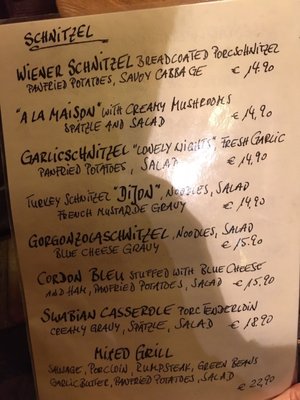 SCHNITZEL
WIENER SCHNITZEL BREADCOATED PORCSCHNITZEL
PANFRIED POTATOES, SAVOY CABBAGE € 14.90
"A LA MAISON" WITH CREAMY MUSHROOMS
SPÄTZLE AND SALAD € 14,90
GARLICSCHNITZEL "LONELY NIGHTS", FRESH GARLIC
PANFRIED POTATOES, SALAD € 14.90
TURKEY SCHNITZEL "DIJON", NOODLES, SALAD
FRENCH MUSTARDE GRAVY € 14,90
GORGONZOLASCHNITZEL, NOODLES, SALAD
BLUE CHEESE GRAVY € 15.90
CORDON BLEU STUFFED WITH BLUE CHEESE
AND HAM, PANFRIED POTATOES, SALAD € 15,90
SWABIAN CASSEROLE PORC TENDERLOIN
CREAMY GRAVY, SPÄTZLE, SALAD € 18.90
MIXED GRILL
SAUSAGE, PORCLOIN, RUMPSTEAK, GREEN BEANS
GARLIC BUTTER, PANFRIED POTATOES, SALAD
€ 22,90